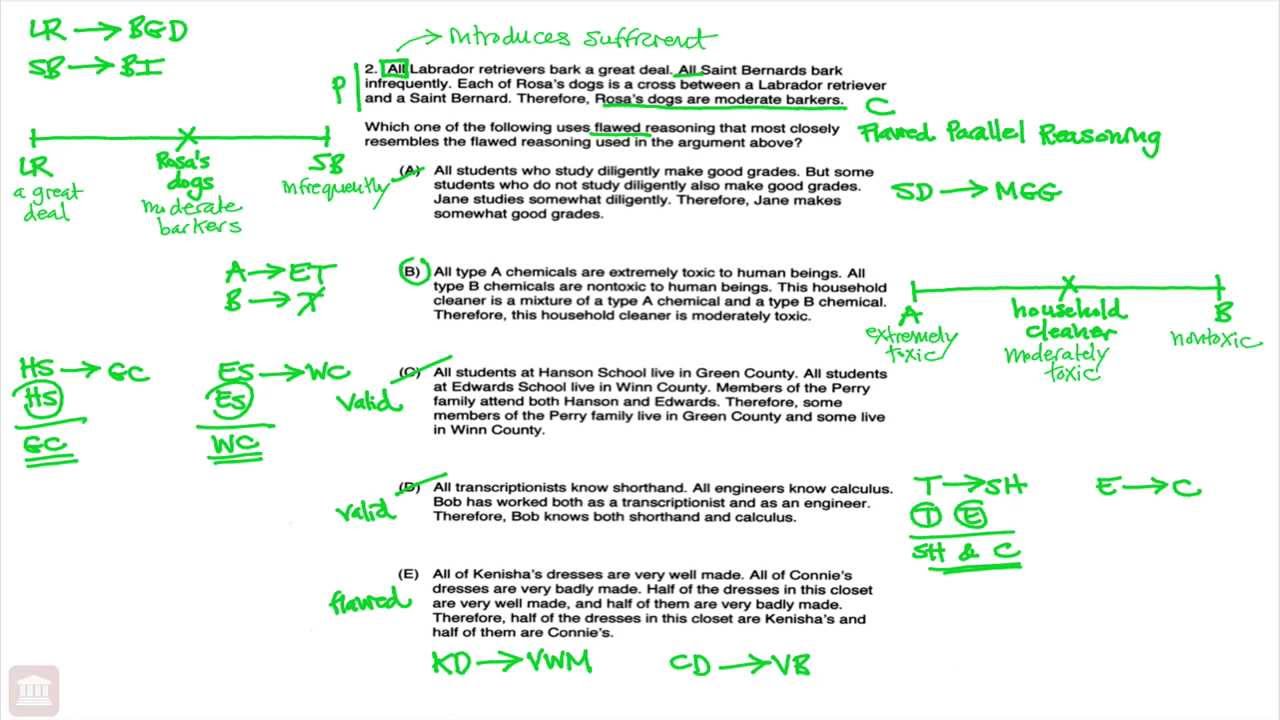 LR → BGD
SB → BI
Introduces sufficient
P
2. All Labrador retrievers bark a great deal. All Saint Bernards bark
infrequently. Each of Rosa's dogs is a cross between a Labrador retriever
and a Saint Bernard. Therefore, Rosa's dogs are moderate barkers.
C
Which one of the following uses flawed reasoning that most closely
resembles the flawed reasoning used in the argument above?
Flawed Parallel Reasoning
LR
a great
deal
Rosa's
dogs
moderate
barkers
SB
infrequently
(A) All students who study diligently make good grades. But some
students who do not study diligently also make good grades.
Jane studies somewhat diligently. Therefore, Jane makes
somewhat good grades.
SD → MGG
A → ET
B → T
(B) All type A chemicals are extremely toxic to human beings. All
type B chemicals are nontoxic to human beings. This household
cleaner is a mixture of a type A chemical and a type B chemical.
Therefore, this household cleaner is moderately toxic.
A
extremely
toxic
household
cleaner
moderately
toxic
B
nontoxic
HS → GC
HS
GC
ES → WC
ES
WC
valid
(C) All students at Hanson School live in Green County. All students
at Edwards School live in Winn County. Members of the Perry
family attend both Hanson and Edwards. Therefore, some
members of the Perry family live in Green County and some live
in Winn County.
valid
(D) All transcriptionists know shorthand. All engineers know calculus.
Bob has worked both as a transcriptionist and as an engineer.
Therefore, Bob knows both shorthand and calculus.
T → SH
E → C
T E
SH & C
flawed
(E) All of Kenisha's dresses are very well made. All of Connie's
dresses are very badly made. Half of the dresses in this closet
are very well made, and half of them are very badly made.
Therefore, half of the dresses in this closet are Kenisha's and
half of them are Connie's.
KD → VWM
CD → VB